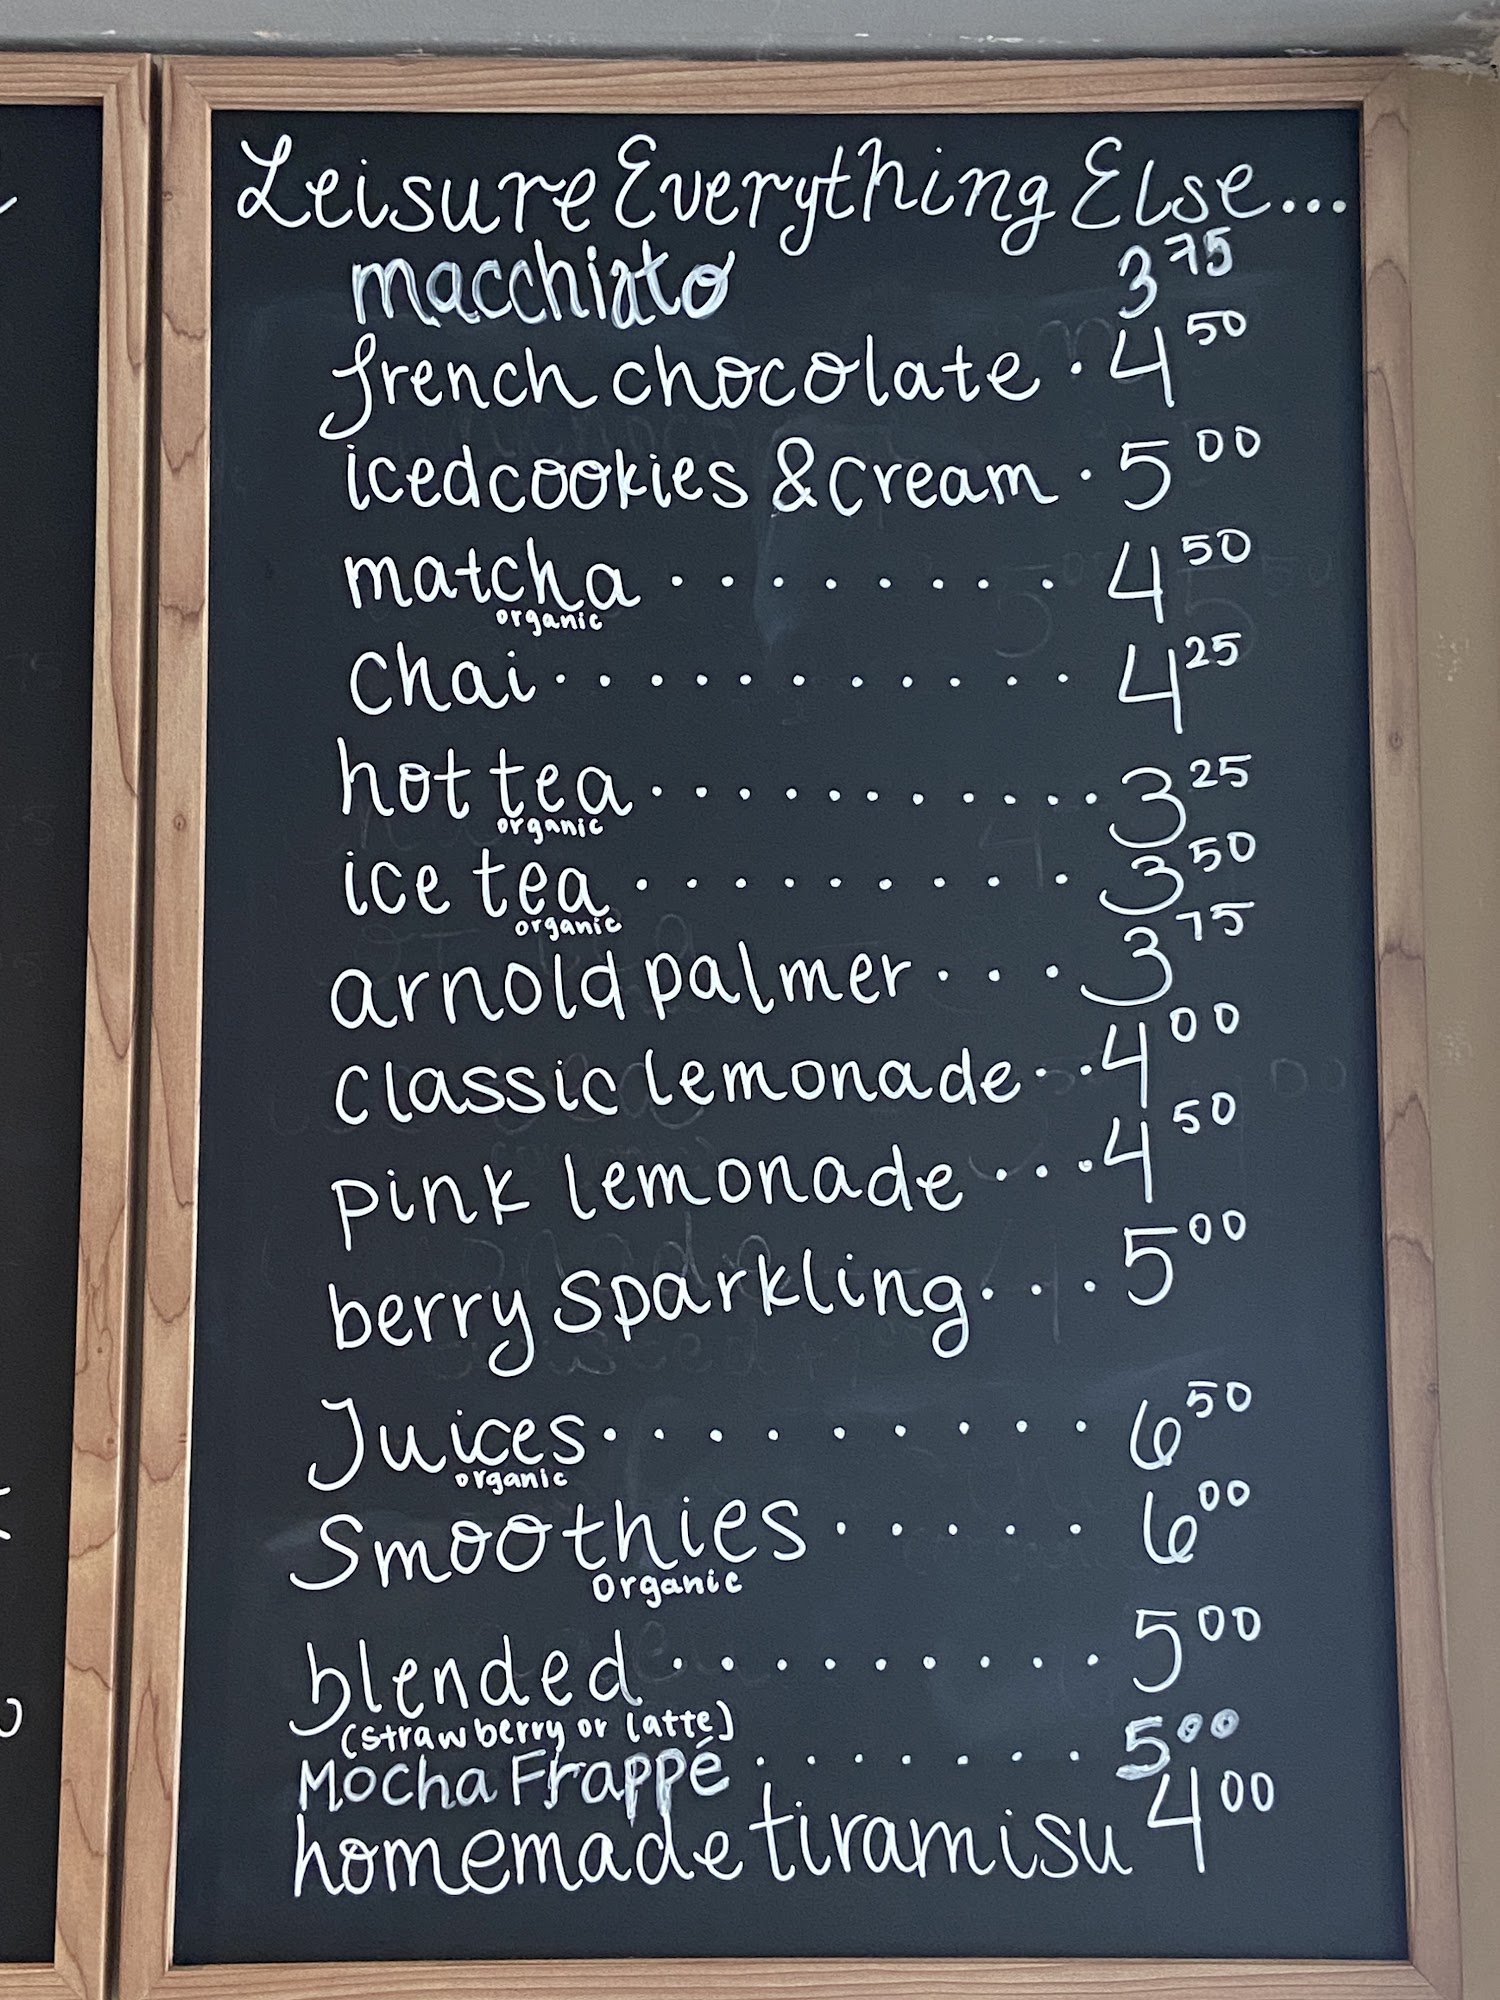 Leisure Everything Else...
macchiato 3 75
french chocolate . 4 50
iced cookies & cream . 5 00
matcha . . . . . . . . . 4 50
organic
chai . . . . . . . . . . . . 4 25
hot tea . . . . . . . . . . . 3 25
organic
ice tea . . . . . . . . . . 3 50
organic
arnold palmer . . . 3 75
classic lemonade . . 4 00
pink lemonade . . . 4 50
berry sparkling . . . 5 00
Juices . . . . . . . . . . 6 50
organic
Smoothies . . . . . 6 00
Organic
blended . . . . . . . . . . 5 00
(strawberry or latte)
Mocha Frappé . . . . . . . 5 00
homemade tiramisu 4 00